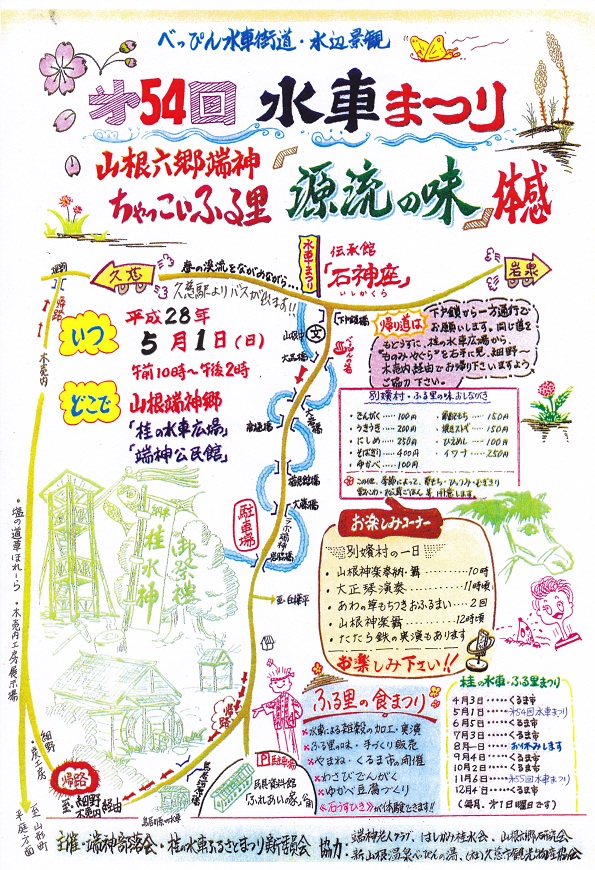 べっぴん水車街道・水辺景観
第54回 水車まつり
山根六郷端神
ちゃっこいふる里 源流の味 体感
久慈
春の渓流をながめながら…
久慈駅よりバスが出ます!!
水車まつり
伝承館
「石神座」
いしがくら
岩泉
帰路
木売内
いつ
平成28年
5月1日(日)
午前10時〜午後2時
どこで
山根端神郷
「桂の水車広場」
「端神公民館」
帰り道は
下戸鎖から一方通行で
お願いします。同じ道を
もどらずに、桂の水車広場から、
"ものみやぐら"を右手に見、細野〜
木売内経由でお帰り下さいますよう、
ご協力下さい。
別嬪村・ふる里の味おしながき
・でんがく……100円
・うきうき……200円
・にしめ……250円
・そばきり……400円
・ゆかべ……100円
・草もち……150円
・焼きスルメ……150円
・ひえめし……100円
・イワナ……250円
駐車場
至・白樺平
お楽しみコーナー
別嬪村の一日
・山根神楽奉納・舞……10時
・大正琴演奏……11時頃
・あわの草もちつきおふるまい……2回
・山根神楽舞……12時頃
・たたら鉄の実演もあります
お楽しみ下さい!!
桂水神
御祭禮
・塩の道車ほれーら
・木売内工房展示場
・炭工房
細野
帰路
至・細野
木売内 経由
至山形町
平庭方面
帰路
P駐車場
民具資料館
「ふれあい豚舎」
ふる里の食まつり
×水車による雑穀の加工・実演
×ふる里の味・手づくり販売
×やまね・くるま市の開催
×わさびでんがく
×ゆかべ豆腐づくり
×石うすひきが体験できます!!
桂の水車・ふる里まつり
4月3日……くるま市
5月1日……第54回水車まつり
6月5日……くるま市
7月3日……くるま市
8月―日……お休みします
9月4日……くるま市
10月2日……くるま市
11月6日……第55回水車まつり
12月4日……くるま市
(毎月、第1日曜日です)
主催・端神部落会・桂の水車ふるさとまつり新委員会
協力・端神老人クラブ、はしかみ桂水会、山根六郷研究会、
新山根温泉べっぴんの湯、(社)久慈市観光物産協会